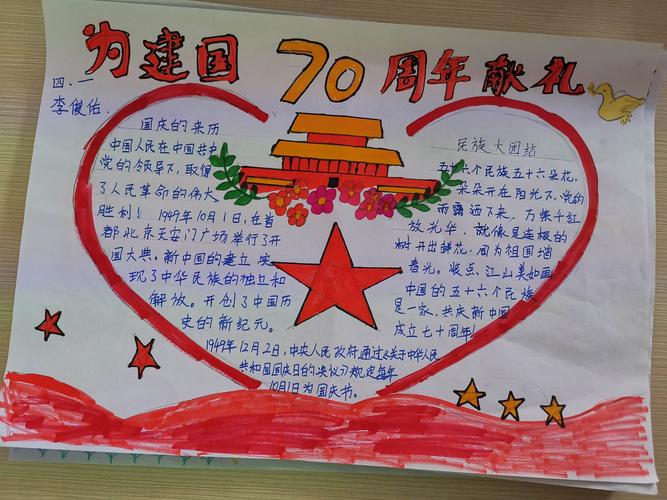 为建国70周年献礼
四、一
李俊佑
国庆的来历
中国人民在中国共
党的领导下,取得
了人民革命的伟大
胜利！1949年10月1日,在首
都北京天安门广场举行了开
国大典。新中国的建立,实
现了中华民族的独立和
解放。开创了中国历
史的新纪元。
1949年12月2日,中央人民政府通过《关于中华人民
共和国国庆日的决议》规定每年
10月1日为国庆节。
民族大团结
五十六个民族五十六朵花,
朵朵开在阳光下,党的
雨露洒下来,万紫千红
放光华,就像是连根的
树开出鲜花,同为祖国增
春光。装点江山美如画
中国的五十六个民族
是一家,共庆新中国
成立七十周年！